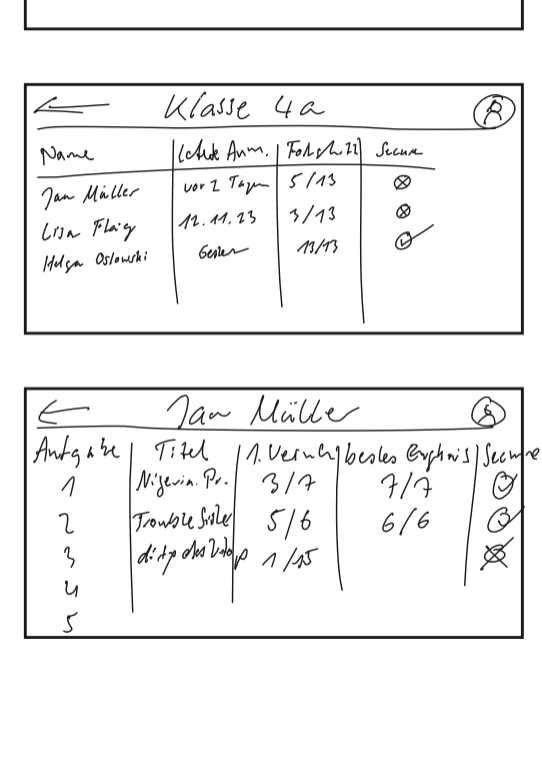 Klasse 4a
Name letzte Anm. Fortsch. Secure
Jan Müller vor 2 Tagen 5/13
Lisa Flaig 12.11.23 3/13
Helga Oslowski Gestern 13/13
Jan Müller
Aufgabe Titel 1. Versuch bestes Ergbnis Secure
1 Nigeria. Pr. 3/7 7/7
2 Trouble 5/6 6/6
3 1/15
4
5